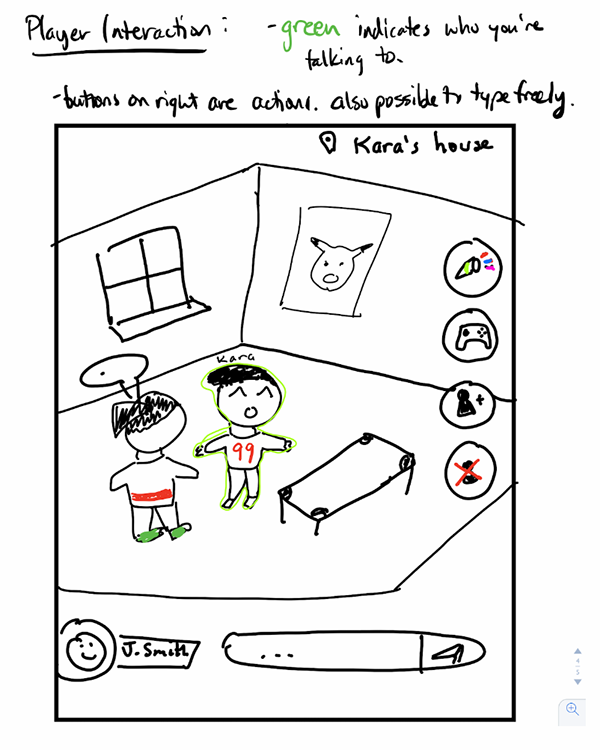 Player Interaction: - green indicates who you're
talking to.
- buttons on right are actions. also possible to type freely.
Kara's house
Kara
99
J. Smith
...